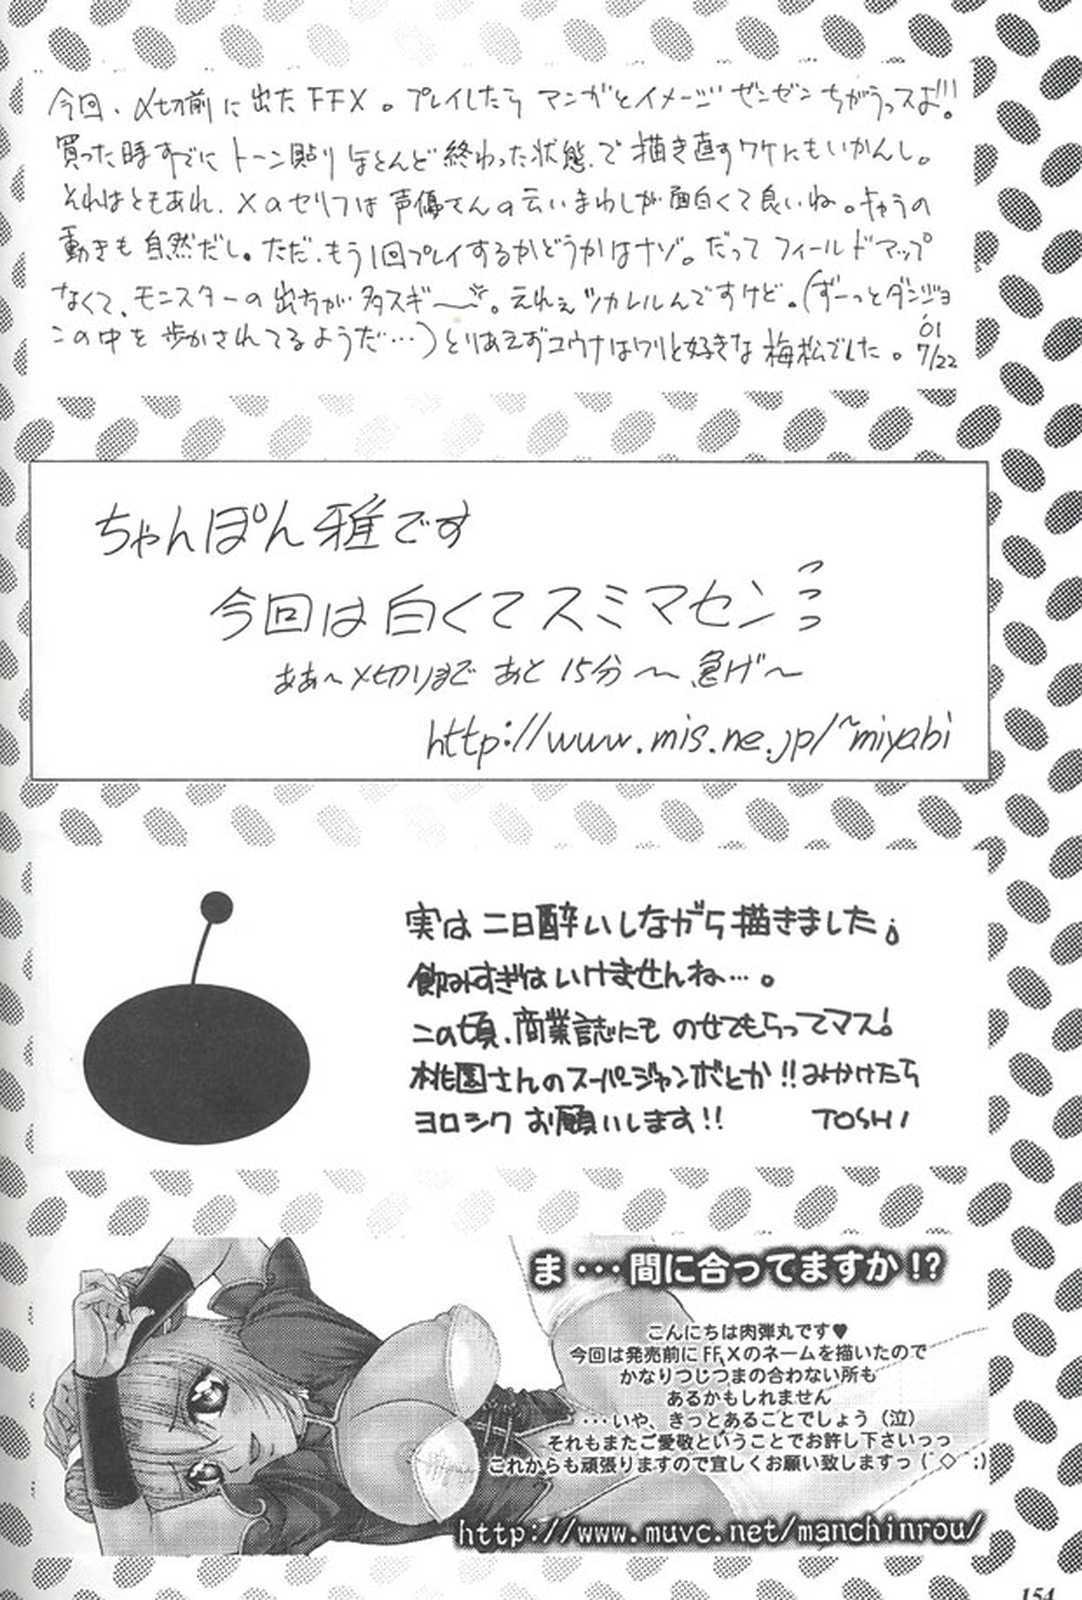 今回、〆切前に出たFFX。プレイしたら マンガとイメージ ゼンゼン ちがうっスよ!!!
買った時すでに トーン貼り ほとんど 終わった状態で 描き直すワケにもいかんし。
それはともあれ、Xのセリフは 声優さんの云いまわしが 面白くて良いね。キャラの
動きも 自然だし。ただ、もう1回プレイするかどうかはナゾ。だって フィールドマップ
なくて、モンスターの 出方が 多スギ〜。えれぇ ツカレルんですけど。(ずーっとダンジョ
ンの中を 歩かされてるようだ…)とりあえずユウナはワリと好きな 梅松でした。
'01
7/22
ちゃんぽん雅です
今回は白くてスミマセン
ああ〜〆切りまで あと 15分〜急げ〜
http://www.mis.ne.jp/~miyabi
実は二日酔いしながら描きました
飲みすぎはいけませんね…。
この頃、商業誌にも のせてもらってマス!
桃園さんのスーパージャンボとか!!みかけたら
ヨロシク お願いします!! TOSHI
ま・・・間に合ってますか!?
こんにちは肉弾丸です♥
今回は発売前にFF,Xのネームを描いたので
かなりつじつまの合わない所も
あるかもしれません
・・・いや、きっとあることでしょう（泣）
それもまたご愛敬ということでお許し下さいっっ
これからも頑張りますので宜しくお願い致しますっ(´◇｀;)
http://www.muvc.net/manchinrou/
154